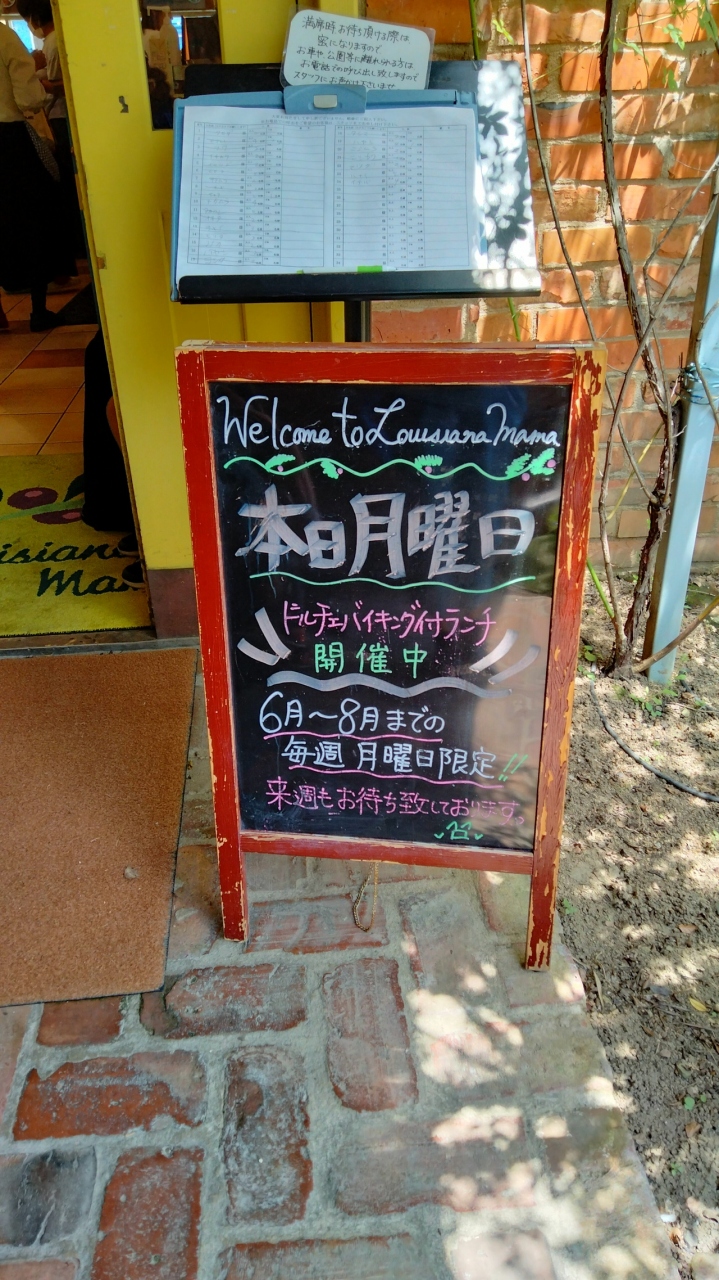 満席時お待ち頂ける際は
密になりますので
お車や公園等に離れられる方は
お電話での呼び出し致しますので
スタッフにお声がけ下さいませ
Welcome to Louisiana Mama
本日月曜日
ドルチェバイキング付ランチ
開催中
6月〜8月までの
毎週 月曜日限定!!
来週もお待ち致しております。
isiana
Ma